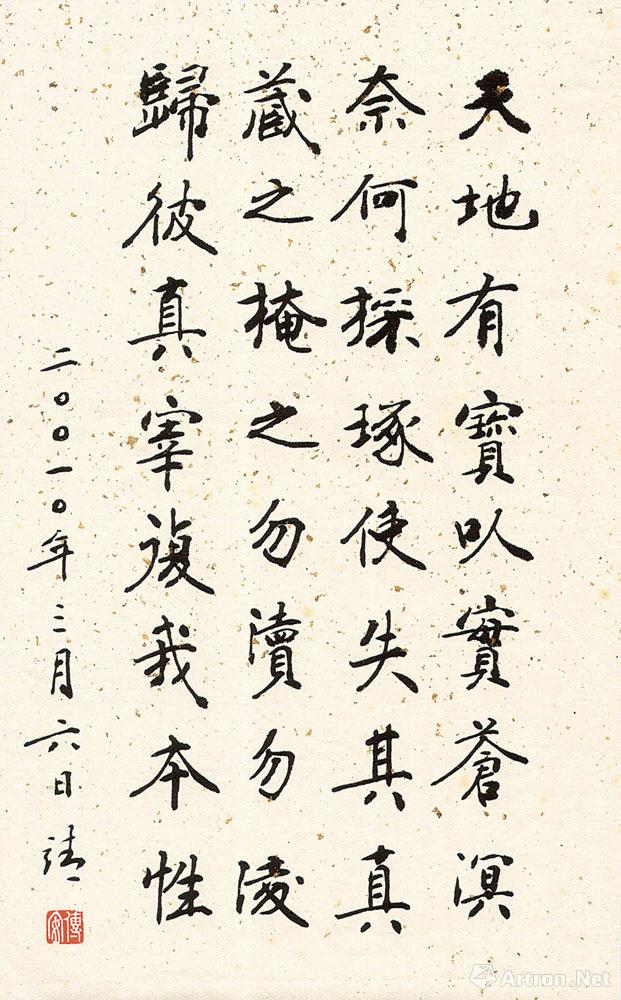 天地有寶㕥實蒼溟
奈何採琢使失其真
藏之掩之勿瀆勿淩
歸彼真宰復我本性
二〇〇一〇年三月六日
Artron.Net